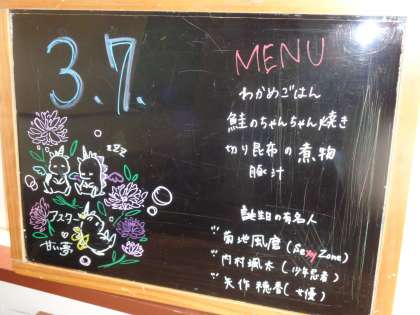 3.7.
MENU
わかめごはん
鮭のちゃんちゃん焼き
切り昆布の煮物
豚汁
誕生日の有名人
菊池風磨(Sexy Zone)
内村颯太(少年忍者)
矢作穂香(女優)
zzz
アスター
甘い夢